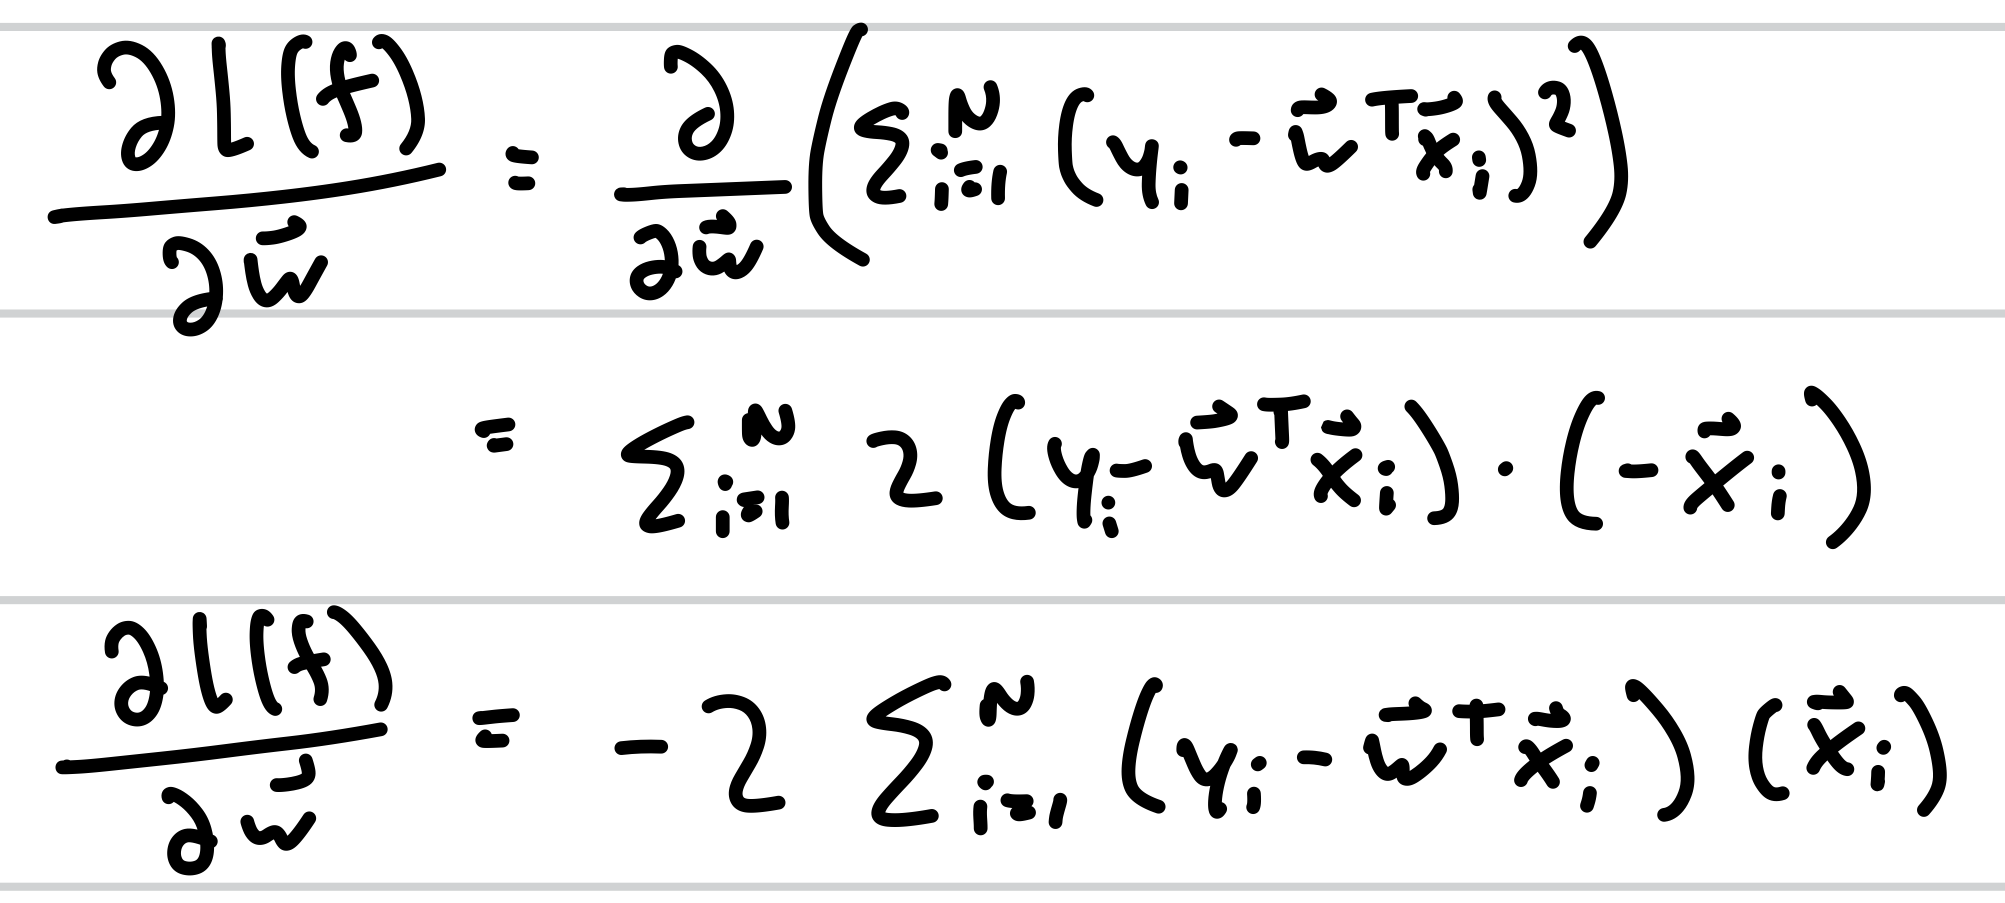 ∂L(f)/∂w⃗ = ∂/∂w⃗ (Σ_{i=1}^N (y_i - w⃗^T x⃗_i)^2)
= Σ_{i=1}^N 2 (y_i - w⃗^T x⃗_i) · (-x⃗_i)
∂L(f)/∂w⃗ = -2 Σ_{i=1}^N (y_i - w⃗^T x⃗_i) (x⃗_i)